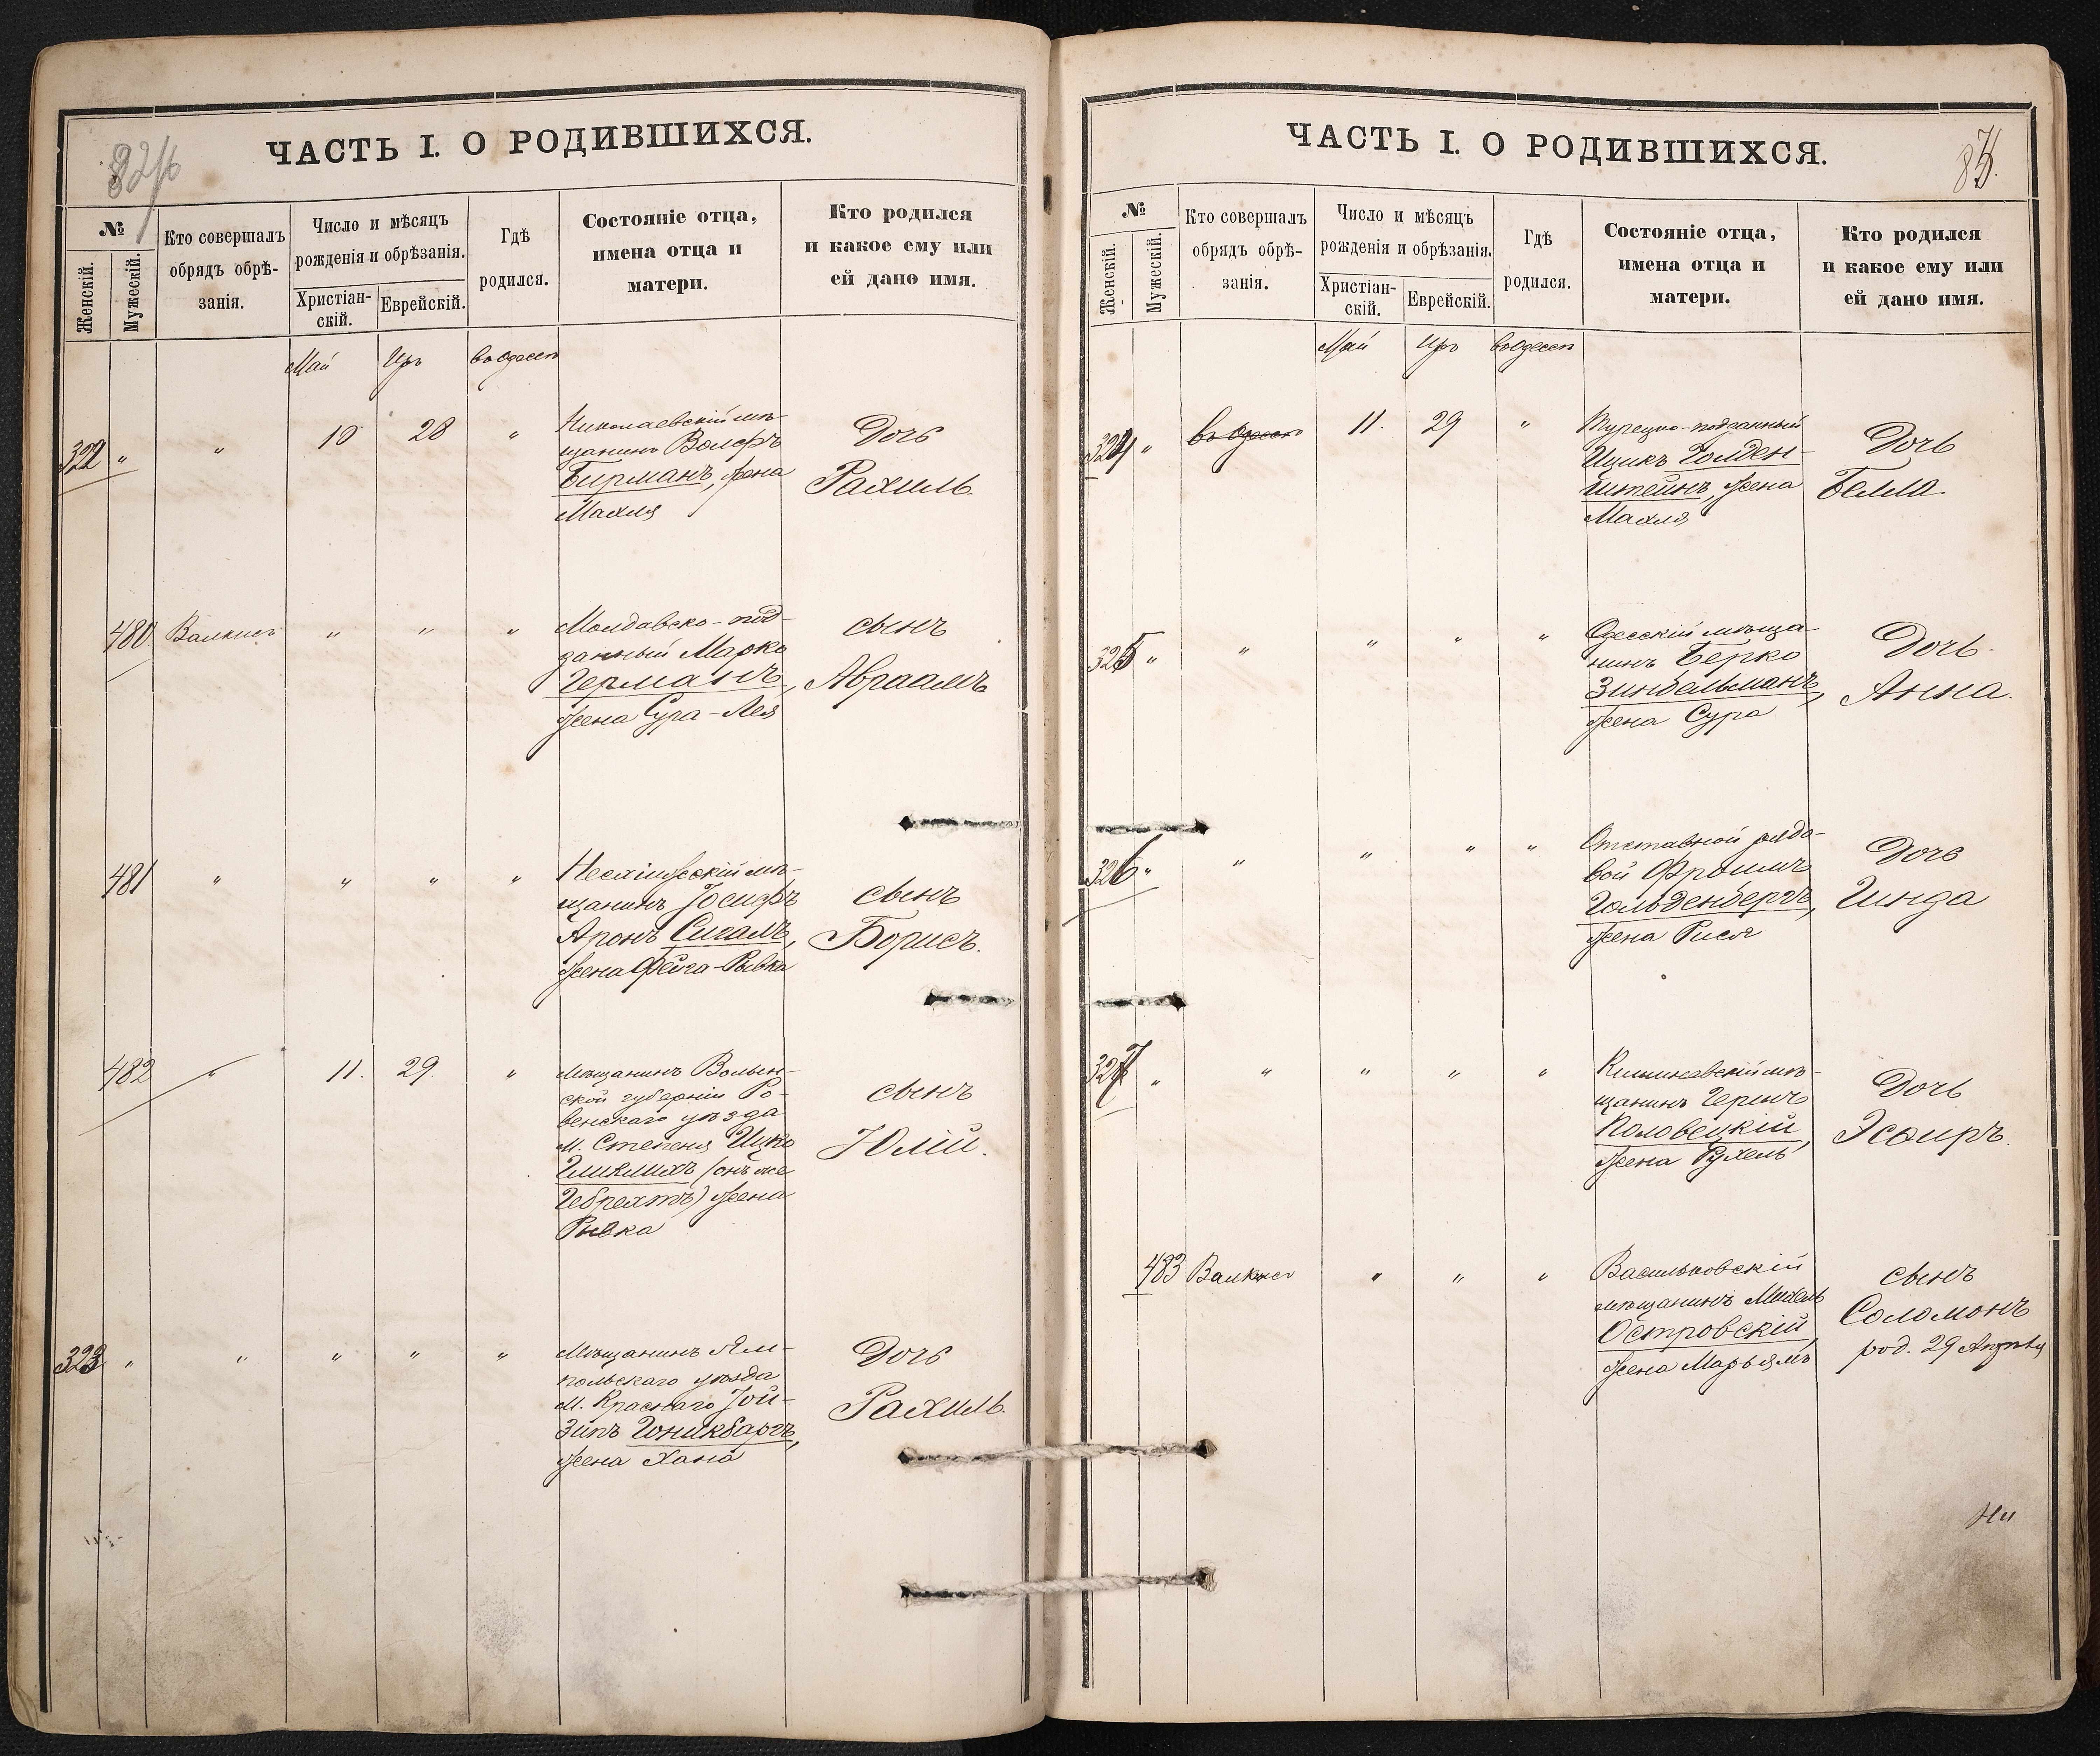 ЧАСТЬ I. О РОДИВШИХСЯ.
№
Женскій.
Мужескій.
Кто совершалъ
обрядъ обрѣ-
занія.
Число и мѣсяцъ
рожденія и обрѣзанія.
Христіан-
скій.
Еврейскій.
Гдѣ
родился.
Состояніе отца,
имена отца и
матери.
Кто родился
и какое ему или
ей дано имя.
Май Иръ въ Одессѣ
322 " " 10 28 "
Николаевскій мѣ-
щанинъ Вольфъ
Бирманъ, жена
Махля
Дочь
Рахиль.
480 " " "
Молдавско-под-
данный Марко
Германъ,
жена Сура-Лея
сынъ
Авраамъ
481 " " " "
мѣ-
щанинъ Іосифъ
Аронъ Сигалъ,
жена Фейга-Ривка
сынъ
Борисъ.
482 " 11. 29. "
Мѣщанинъ Волын-
ской губерніи Ро-
венскаго уѣзда
м. Степеня Ицко
(онъ же
Гебрехтъ) жена
Ривка
сынъ
Юлій.
323 " " " " "
Мѣщанинъ Ям-
польскаго уѣзда
м. Краснаго Іой-
зипъ Гоникбаргъ,
жена Хана
Дочь
Рахиль.
ЧАСТЬ I. О РОДИВШИХСЯ.
85.
№
Женскій.
Мужескій.
Кто совершалъ
обрядъ обрѣ-
занія.
Число и мѣсяцъ
рожденія и обрѣзанія.
Христіан-
скій.
Еврейскій.
Гдѣ
родился.
Состояніе отца,
имена отца и
матери.
Кто родился
и какое ему или
ей дано имя.
Май Иръ въ Одессѣ
324 " въ Одессѣ 11. 29 "
Турецко-подданный
Ицикъ Голден-
штейнъ, жена
Махля
Дочь
Белла.
325 " " " " "
Одесскій мѣща-
нинъ Берко
Зинбельманъ,
жена Сура
Дочь.
Анна.
326 " " " " "
Отставной рядо-
вой Фроимъ
Гольденбергъ,
жена Рися
Дочь
Гинда
327 " " " " "
Кишиневскій мѣ-
щанинъ Гершъ
Половецкій,
жена Рухель
Дочь
Эсѳиръ.
483 " " "
Васильковскій
мѣщанинъ Михель
Островскій,
жена Марьямъ
сынъ
Соломонъ
род. 29 Апрѣля